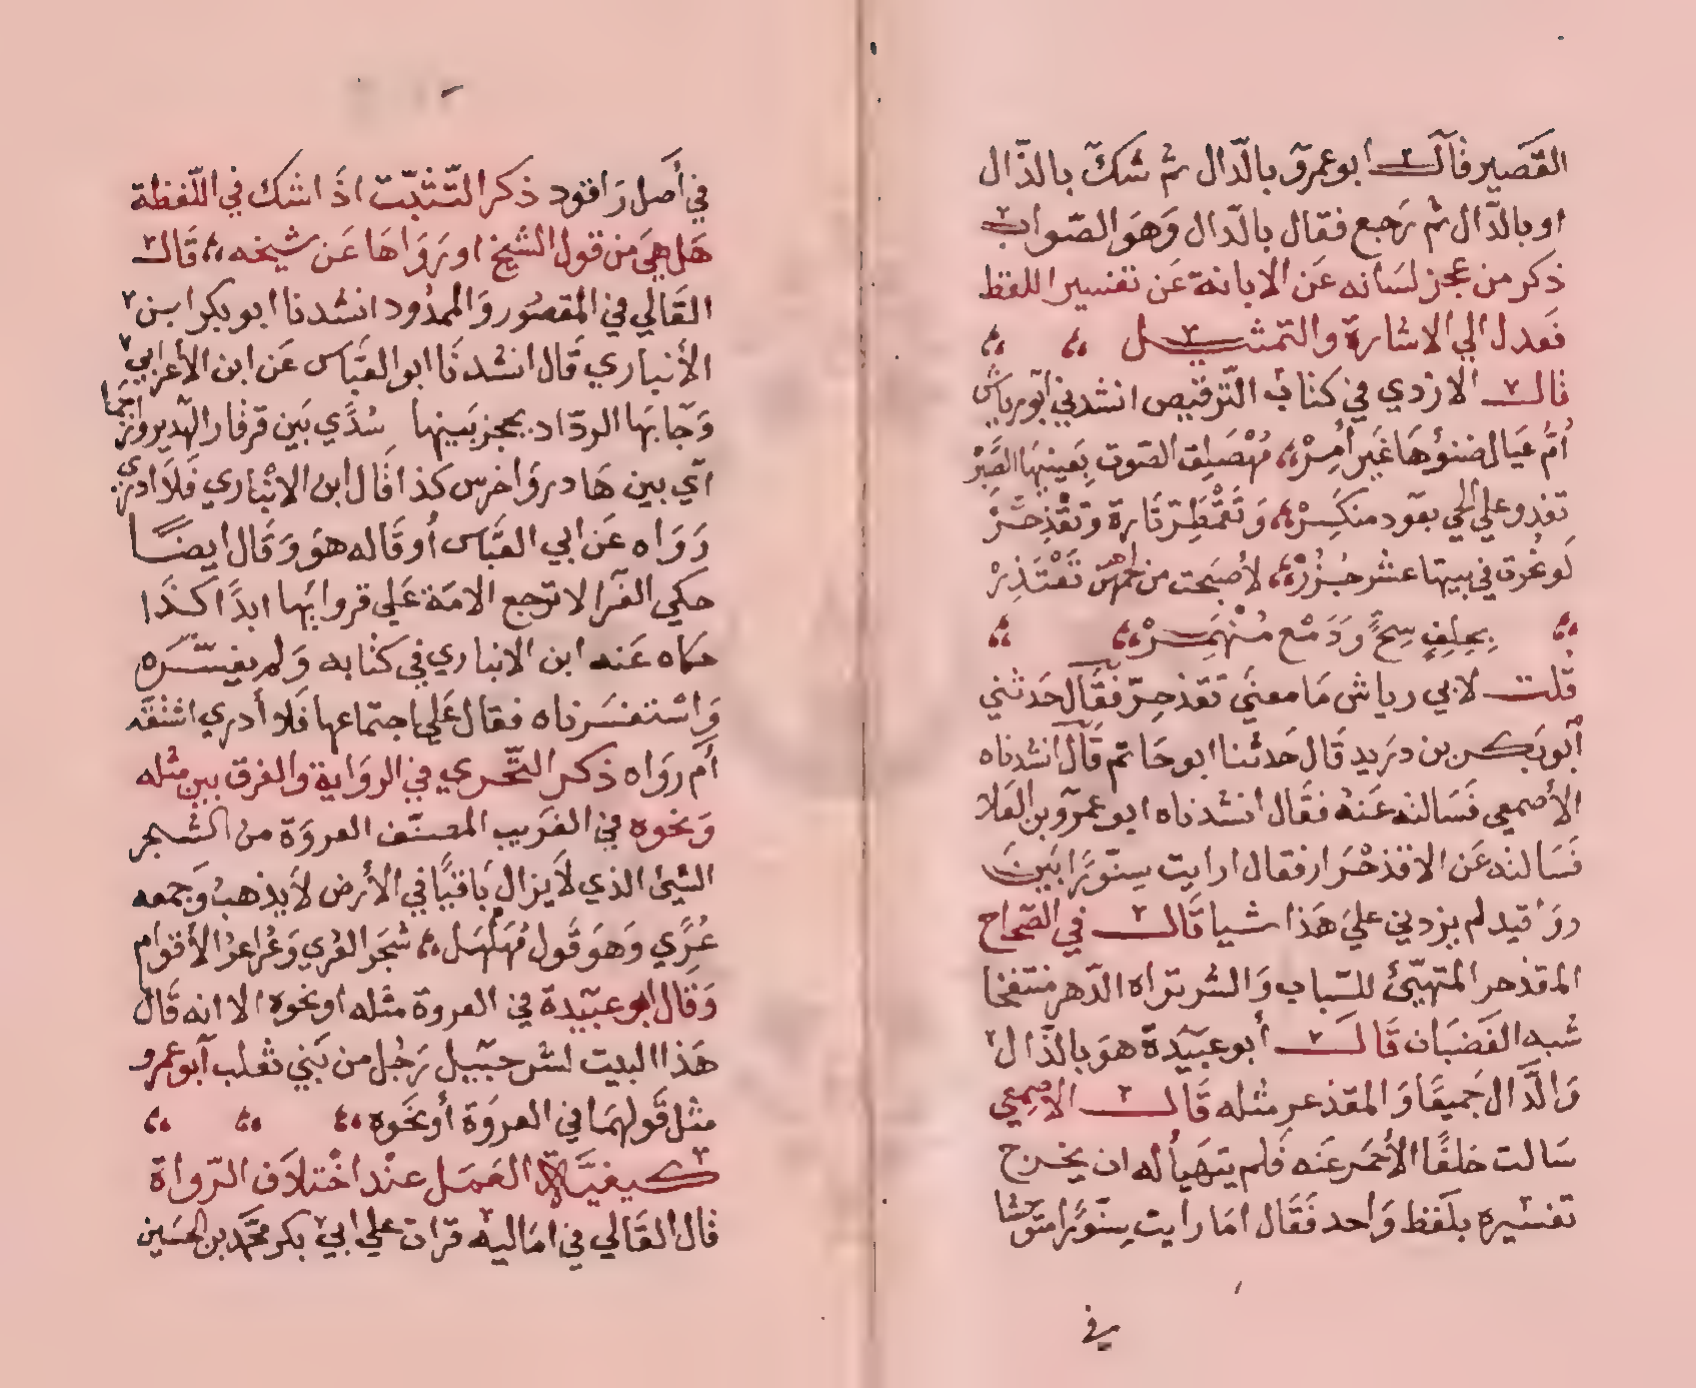 القَصير فقالَ ابو عمرو بالدّال ثم شكّ بالذّال
او بالدّال ثم رَجع فقال بالدّال وَهوَ الصّواب
ذكر من عجز لسَانه عَن الابانة عَن تفسير اللفظ
فَعدل الي الاشارة والتمثيل
قال الازدي في كتاب التّرقيص انشدني أبو رياش
أُمُّ عيَال ضنؤُهَا غَير أمِرْ، مُهْصَلِق الصّوت بعَينيهَا الصَبَرْ
تغدو علي الحي بعَود منكَسِرْ، وَتَقْمَطِرّ تارة وتقْذِحَرَّ
لَو نُحُرَت في بيتهَا عشر جُزُرْ، لأصبَحت من لحمهن تَعْتَذِرْ
بِحلِفٍ سِحٍّ وَدَمْع مُنْهَمِرْ
قُلت لابي رياش مَا معنَي تَقذحِرّ فقَال حَدثني
أبو بَكر بن دريد قَال حَدثنا ابو حَاتم قَال انشدناه
الأصمعي فَسَالته عَنهُ فقَال انشدناه ابو عمرو بن العَلا
فَسَالته عَن الاقذحْرَار فقال ارايت سِنّورًا بَينَ
روَاقيد لم يزدني عليَ هَذا شيا قَال في الصّحاح
المقذحر المتهيّئ للسّباب وَالشر تراه الدّهر منتفخا
شبه الغَضبَان قَال أبو عبَيدة هوَ بالذّال
وَالدّال جَميعًا وَالمقذعر مثله قَال الاصمعي
سَالت خلفًا الأحمَر عَنه فَلم يتهَيأ له ان يخرج
تفسيره بلَفظ وَاحد فَقَال امَا رايت سِنّورًا متوحّشا
في
في أصل رَاقود ذكر التّثبّت اذَا شك في اللّفظة
هَل هيَ من قول الشيخ او رَوَاهَا عَن شيخه، قَال
القَالي في المقصُور وَالممدُود انشدنا ابو بكر ابن
الأنباري قَال انشدنَا ابو العَبّاس عَن ابن الأعرَابي
وَجَا بهَا الردّاد يحجز بَينهَا سُدًي بَين قرقار الهَدير وَازجَما
أي بين هَادر وَاخرس كذا قَال ابن الانْبَاري فَلاَ ادري
رَوَاه عَن ابي العَبَّاس أو قَاله هوَ وَقَال ايضًا
حكي الفَرا لا ترجع الامَة عَلي قروايهَا ابدًا كذَا
حكاه عَنه ابن الانباري في كتابه وَلم يفسّره
وَاسْتفسَرناه فقال عَلي اجتماعها فَلا أدري اشتقَه
أم رَوَاه ذكر التَّحري في الروَاية وَالفرق بين مثله
وَنحوه في الغَريب المصنّف العروَة من الشجر
الشيئ الذي لاَ يزال بَاقيًا في الأرض لا يذهبُ وَجمعه
عُرًي وَهوَ قَول مُهَلهَل، شجَر العُري وَعُراعرُ الأقوام
وَقال ابو عبَيدة في العروة مثله او نحوه الا انه قَال
هَذا البيت لشرحبَيل رَجُل من بَني تغلب أبو عمرو
مثل قَولهمَا في العروَة أو نحَوه
كيفيَّة العَمَل عنْد اخْتلاَف الرّوَاة
قال القَالي في امَاليه قرات علي ابي بكر محمَّد بن الحسَين